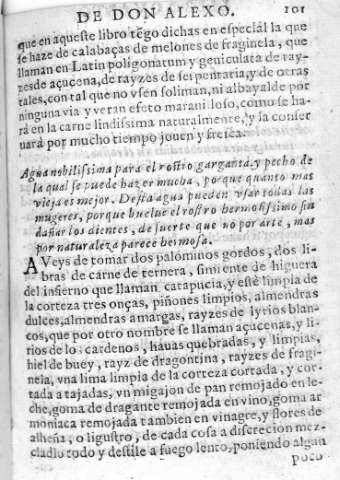 DE DON ALEXO. 101
que en aqueste libro tẽgo dichas en especiál la que
se haze de calabaças de melones de fraginela, que
llaman en Latin poligonatum y geniculata de ray-
zes de açuçena, de rayzes de serpentaria, y de otras
tales, con tal que no vsen soliman, ni albayalde por
ninguna via y veran efeto marauilloso, como se ha-
rá en la carne lindissima naturalmente, y la conser
uará por mucho tiempo jouen y fresca.
Agua nobilissima para el rostro garganta y pecho de
la qual se puede hazer mucha, porque quanto mas
vieja es mejor. Desta agua pueden vsar todas las
mugeres, porque buelue el rostro hermosissimo sin
dañar los dientes, de suerte que no por arte, mas
por naturaleza parece hermosa.
AVeys de tomar dos palominos gordos, dos li-
bras de carne de ternera, simiente de higuera
del infierno que llaman catapucia, y esté limpia de
la corteza tres onças, piñones limpios, almendras
dulces, almendras amargas, rayzes de lyrios blan-
cos, que por otro nombre se llaman açuçenas, y li-
rios de los cardenos, hauas quebradas, y limpias,
hiel de buey, rayz de dragontina, rayzes de fragi-
nela, vna lima limpia de la corteza cortada, y cor-
tada a tajadas, vn migajon de pan remojado en le-
che, goma de dragante remojada en vino, goma ar
moniaca remojada tambien en vinagre, y flores de
alheña, o ligustro, de cada cosa a discrecion mez-
cladlo todo y destile a fuego lento, poniendo algun
poco